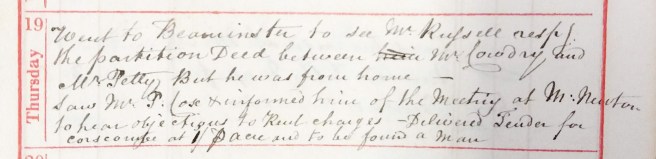 19
Thursday
Went to Beaminster to see Mr Russell resp.
the partition Deed between Mr Cowdry and
Mr Petty But he was from home —
Saw Mr P. Cox & informed him of the Meeting at Mr Newton
to hear objections to Rent charges – Delivered Tender for
corscombe at 1/ acre and to be found a man
20